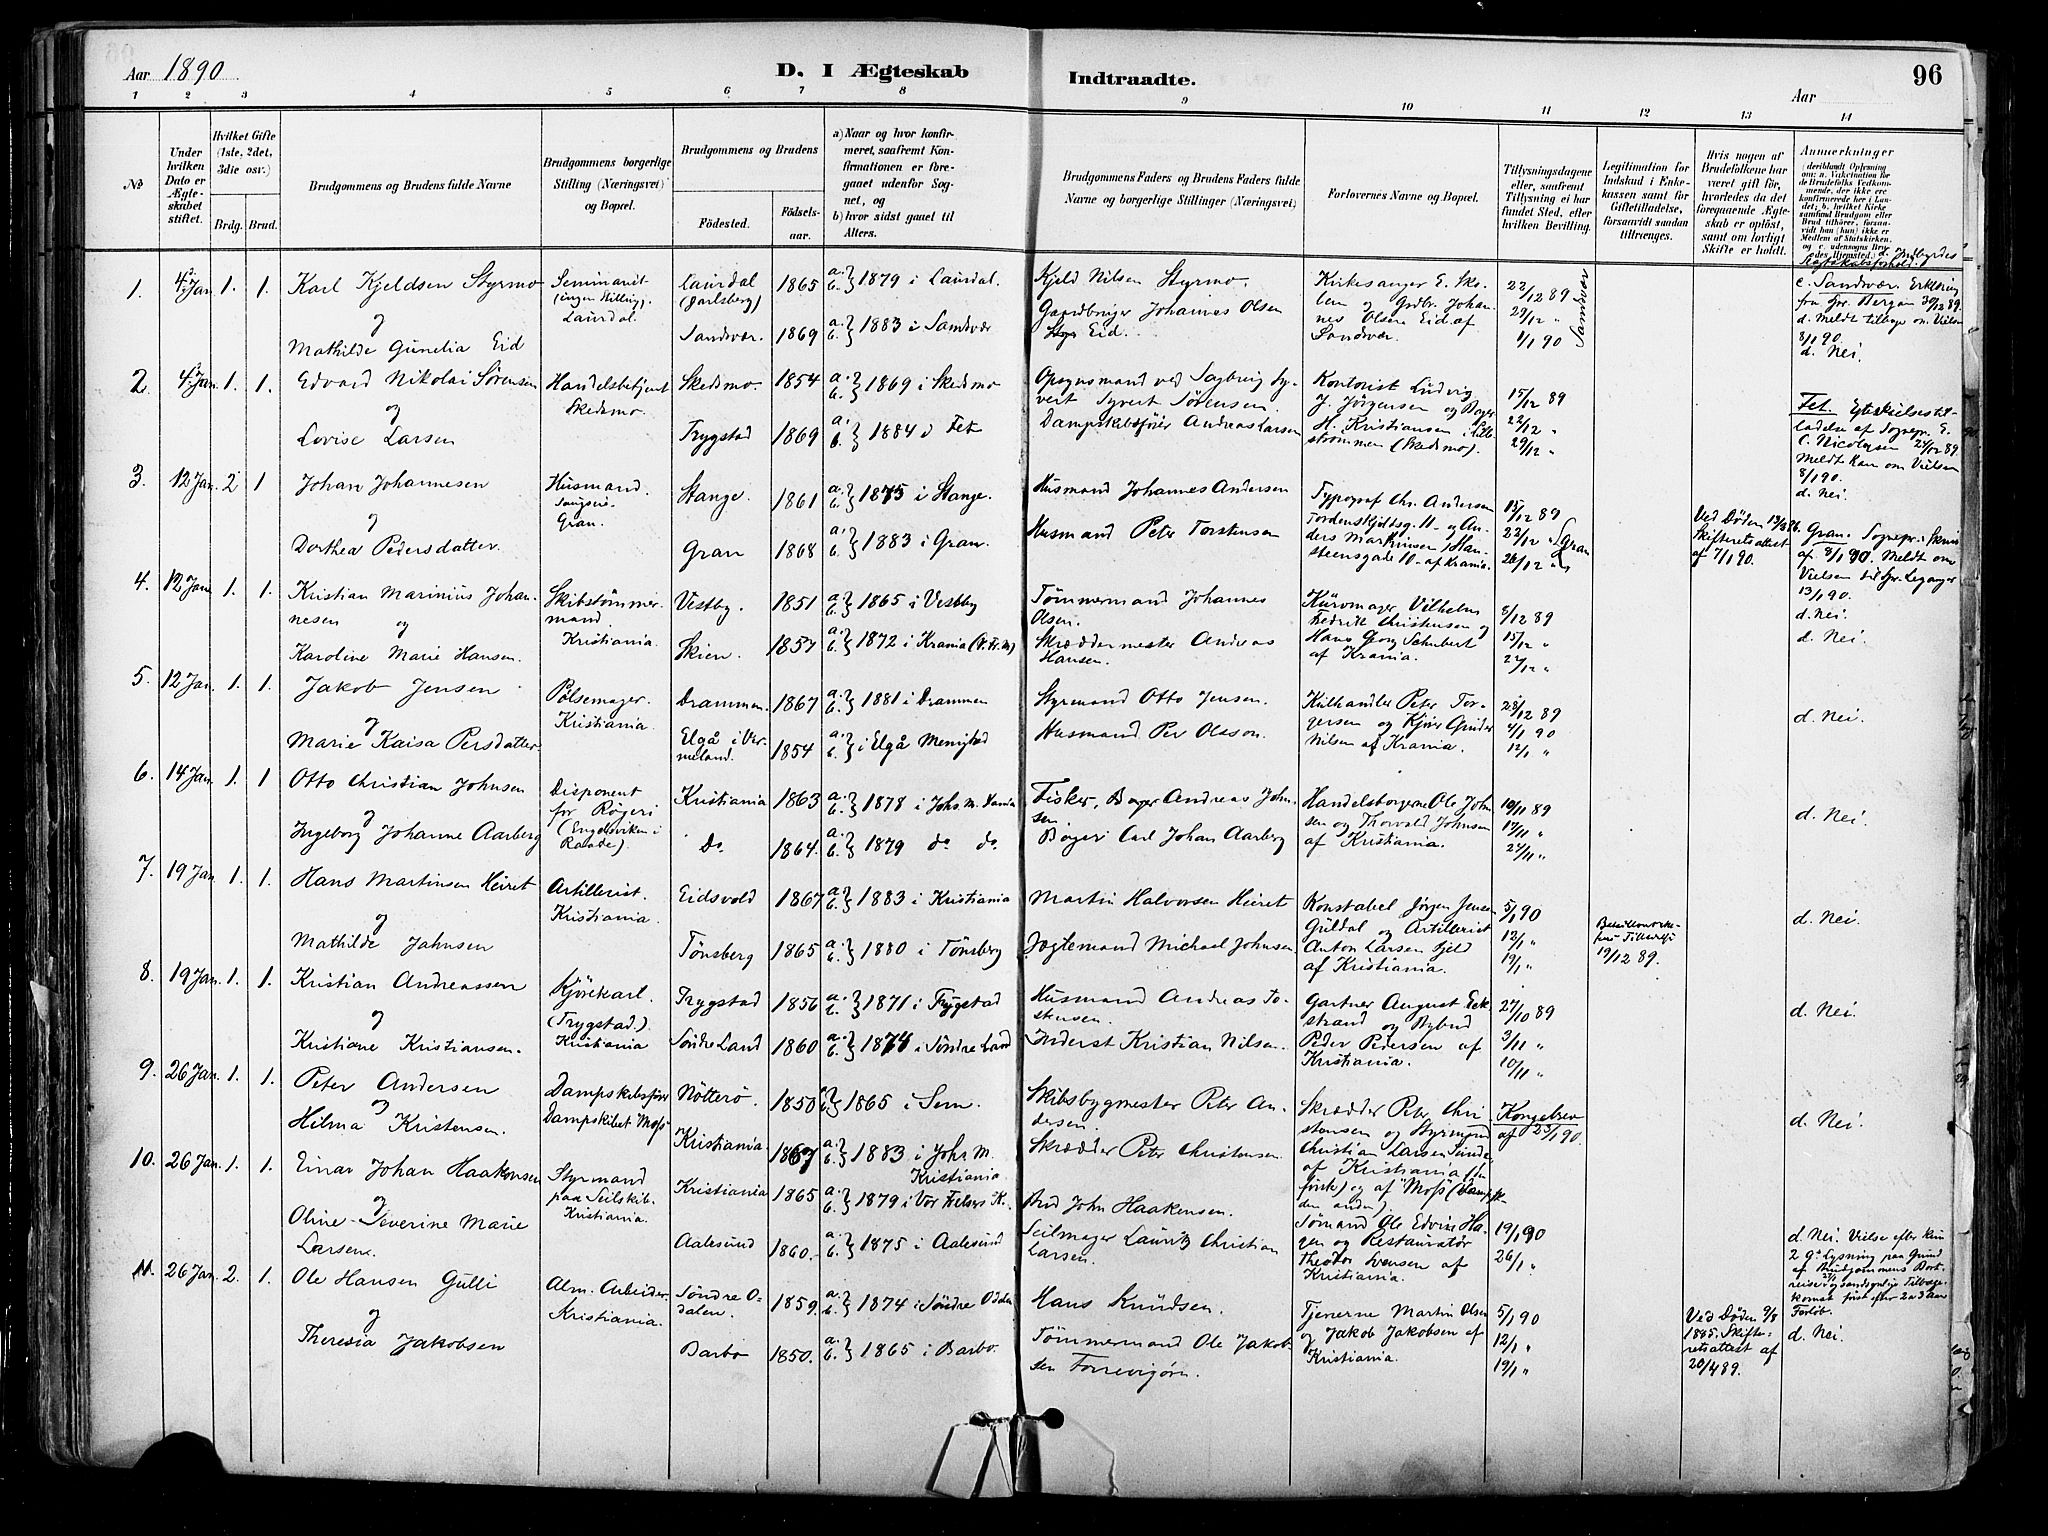 Aar 1890
D. I Ægteskab
Indtraadte.
96
Aar
1 2 3 4 5 6 7 8 9 10 11 12 13 14
No
Under hvilken Dato er Ægteskabet stiftet.
Hvilket Gifte (1ste, 2det, 3die osv.)
Brdg. Brud.
Brudgommens og Brudens fulde Navne
Brudgommens borgerlige Stilling (Næringsvei) og Bopæl.
Brudgommens og Brudens
Födested.
Födselsaar.
a) Naar og hvor konfirmeret, saafremt Konfirmationen er foregaaet udenfor Sognet, og
b) hvor sidst gaaet til Alters.
Brudgommens Faders og Brudens Faders fulde Navne og borgerlige Stillinger (Næringsvei)
Forlovernes Navne og Bopæl.
Tillysningsdagene eller, saafremt Tillysning ei har fundet Sted, efter hvilken Bevilling.
Legitimation for Indskud i Enkekassen samt for Giftetilladelse, forsaavidt saadan tiltrænges.
Hvis nogen af Brudefolkene har været gift för, hvorledes da det foregaaende Ægteskab er oplöst, samt om lovligt Skifte er holdt.
Anmerkninger
1. 4. Jan. 1. 1. Karl Kjeldsen Styrmo
og
Mathilde Gunelia Eid
Seminarist
(ingen Stilling).
Laurdal.
Laurdal
(Jarlsberg)
Sandsvær.
1865
1869
a. b. } 1879 i Laurdal.
a. b. } 1883 i Sandsvær
Kjeld Nilsen Styrmo.
Gaardbruger Johannes Olsen
Eid.
Kirkesanger E. Sko-
len og Grdbr. Johan-
nes Olsen Eid af
Sandsvær.
22/12 89
29/12 "
1/1 90
Sandsvær
c. Sandsvær. Erklæring
d. Meldt tilbage om Vielsen
8/1 90.
d. Nei.
2. 4. Jan. 1. 1. Edvard Nikolai Sörensen
og
Lovise Larsen
Handelsbetjent
Skedsmo.
Skedsmo
Trygstad
1854
1869
a. b. } 1869 i Skedsmo
a. b. } 1884 i Fet
Opsynsmand ved Sagbrug Sy-
vert Syvert Sørensen.
Dampskibsfører Andreas Larsen
Kontorist Ludvig
J. Jörgensen og Bager
H. Kristiansen i Lille-
strømmen (Skedsmo).
15/12 89
22/12 "
29/12 "
Fet.
Meldt kam om Vielsen
8/1 90.
d. Nei.
3. 12 Jan. 2 1 Johan Johannesen
og
Dorthea Pedersdatter
Husmand.
Gran.
Stange.
Gran
1861
1868
a. b. } 1875 i Stange.
a. b. } 1883 i Gran.
Husmand Johannes Andersen
Husmand Peter Torstensen
Typograf Chr. Andersen
Tordenskjoldsg. 11 og An-
ders Martinsen, Han-
steensgade 10 af Krania.
15/12 89
22/12 "
26/12 "
Gran
Ved Döden 13/3 86.
Skifteretsattest
af 7/1 90.
Gran.
af 8/1 90. Meldt om
Vielsen til Spr. Leganger
13/1 90.
d. Nei.
4. 12 Jan. 1. 1. Kristian Marinius Johan-
nesen og
Karoline Marie Hansen.
Skibstømmer-
mand.
Kristiania
Vestby.
Skien.
1851
1857
a. b. } 1865 i Vestby
a. b. } 1872 i Krania (V. Fr. M)
Tømmermand Johannes
Olsen.
Skræddermester Andreas
Hansen.
Kurvmager Vilhelm
Fredrik Christensen og
Hans Georg Schubert
af Krania.
8/12 89
15/12 "
22/12 "
d. Nei.
5. 12 Jan. 1. 1. Jakob Jensen
og
Marie Kaisa Persdatter
Pølsemager.
Kristiania.
Drammen.
Elgå i Ver-
meland.
1867
1854
a. b. } 1881 i Drammen
a. b. } i Elgå Menighed
Styrmand Otto Jensen.
Husmand Per Olsson.
Kulhandler Peter Tor-
gersen og
Nilsen af Krania.
28/12 89
4/1 90
12/1 "
d. Nei.
6. 14 Jan. 1. 1 Otto Christian Johnsen
og
Ingeborg Johanne Aarberg
Disponent
for Røgeri
(Engelsviken i
Raade).
Kristiania
Do
1863
1864.
a. b. } 1878 i Johs. M. Krania
a. b. } 1879 do do.
Fisker, Bager Andreas John-
sen
Bøger Carl Johan Aarberg
Handelsborgerne Ole John-
sen og Thorvald Johnsen
af Kristiania.
10/11 89
17/11 "
24/11 "
d. Nei.
7. 19 Jan. 1. 1. Hans Martinsen Heiret
og
Mathilde Johnsen
Artillerist.
Kristiania.
Eidsvold
Tønsberg
1867
1865
a. b. } 1883 i Kristiania
a. b. } 1880 i Tønsberg
Martin Halvorsen Heiret
Jægtemand Michael Johnsen
Konstabel Jörgen Jensen
Guldal og Artillerist
Anton Larsen Fjeld
af Kristiania.
5/1 90
12/1 "
19/1 "
19/12 89.
d. Nei.
8. 19 Jan. 1. 1. Kristian Andreassen
og
Kristiane Kristiansen.
Kjørekarl.
(Trygstad.)
Kristiania
Trygstad
Søndre Land
1856
1860
a. b. } 1871 i Trygstad
a. b. } 1874 i Søndre Land
Husmand Andreas To-
stensen.
Inderst Kristian Nilsen.
Gartner August Eck-
strand og Bybud
Peder Pedersen af
Kristiania.
27/10 89
3/11 "
10/11 "
d. Nei.
9. 26 Jan. 1. 1. Peter Andersen
og
Hilma Kristensen.
Dampskibsfører
Dampskibet Moss
Nötterö.
Kristiania.
1850
1867
} 1865 i Sem.
a. b. } 1883 i Johs M.
Kristiania
Skibsbygmester Peter An-
dersen.
Skrædder Peter Christensen
Skrædder Peter Chri-
stensen og Styrmand
Christian Larsen
af Kristiania (den
første) og af "Moss" (
den anden).
Kongebrev
af 23/1 90.
d. Nei.
10. 26 Jan. 1. 1. Einar Johan Haakonsen
og
Oline Severine Marie
Larsen.
Styrmand
paa Seilskib.
Kristiania.
Kristiania
Aalesund
1865
1860.
a. b. } 1879 i Vor Frelsers K.
a. b. } 1875 i Aalesund
John Haakensen.
Seilmager Lauritz Christian
Larsen.
Sømand Ole Edvin Ha-
gen og Restauratør
Theodor Svensen af
Kristiania.
19/1 90
26/1 "
d. Nei. Vielse efter kun
2 Gs Lysning paa Grund
af Brudgommens Bort-
reise og sandsynlig Tilbage-
komst først efter 2 a 3 Aars
Forløb.
11. 26 Jan. 2. 1. Ole Hansen Gulli
og
Theresia Jakobsen
Alm. Arbeider.
Kristiania.
Søndre O-
dalen.
Barbo
1859.
1850.
a. b. } 1874 i Søndre Odalen
a. b. } 1865 i Barbo.
Hans Knudsen.
Tømmermand Ole Jakob-
sen
Tjenerne Martin Olsen
og Jakob Jakobsen af
Kristiania.
5/1 90
12/1 "
19/1 "
Ved Døden 9/8
1885. Skifte-
retsattest af
20/4 89.
d. Nei.